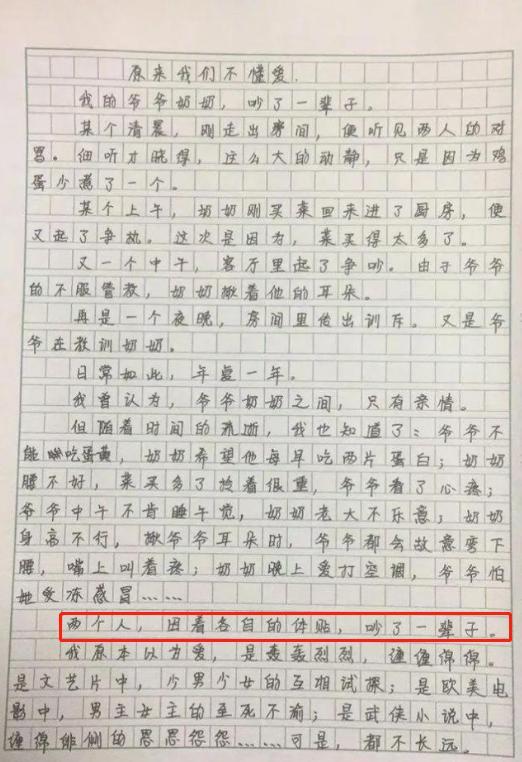 原来我们不懂爱.
我的爷爷奶奶，吵了一辈子。
某个清晨，刚走出房间，便听见两人的对
骂。细听才晓得，这么大的动静，只是因为鸡
蛋少煮了一个。
某个上午，奶奶刚买菜回来进了厨房，便
又起了争执。这次是因为，菜买得太多了。
又一个中午，客厅里起了争吵。由于爷爷
的不服管教，奶奶揪着他的耳朵。
再是一个夜晚，房间里传出训斥。又是爷
爷在教训奶奶。
日常如此，年复一年。
我曾认为，爷爷奶奶之间，只有亲情。
但随着时间的流逝，我也知道了：爷爷不
能吃蛋黄，奶奶希望他每早吃两片蛋白；奶奶
腰不好，菜买多了拎着很重，爷爷看了心疼；
爷爷中午不肯睡午觉，奶奶老大不乐意；奶奶
身高不行，揪爷爷耳朵时，爷爷都会故意弯下
腰，嘴上叫着疼；奶奶晚上爱打空调，爷爷怕
她受冻感冒……
两个人，因着各自的体贴，吵了一辈子。
我原本以为爱，是轰轰烈烈，缠缠绵绵。
是文艺片中，少男少女的互相试探；是欧美电
影中，男主女主的至死不渝；是武侠小说中，
缠绵悱恻的恩恩怨怨……可是，都不长远。